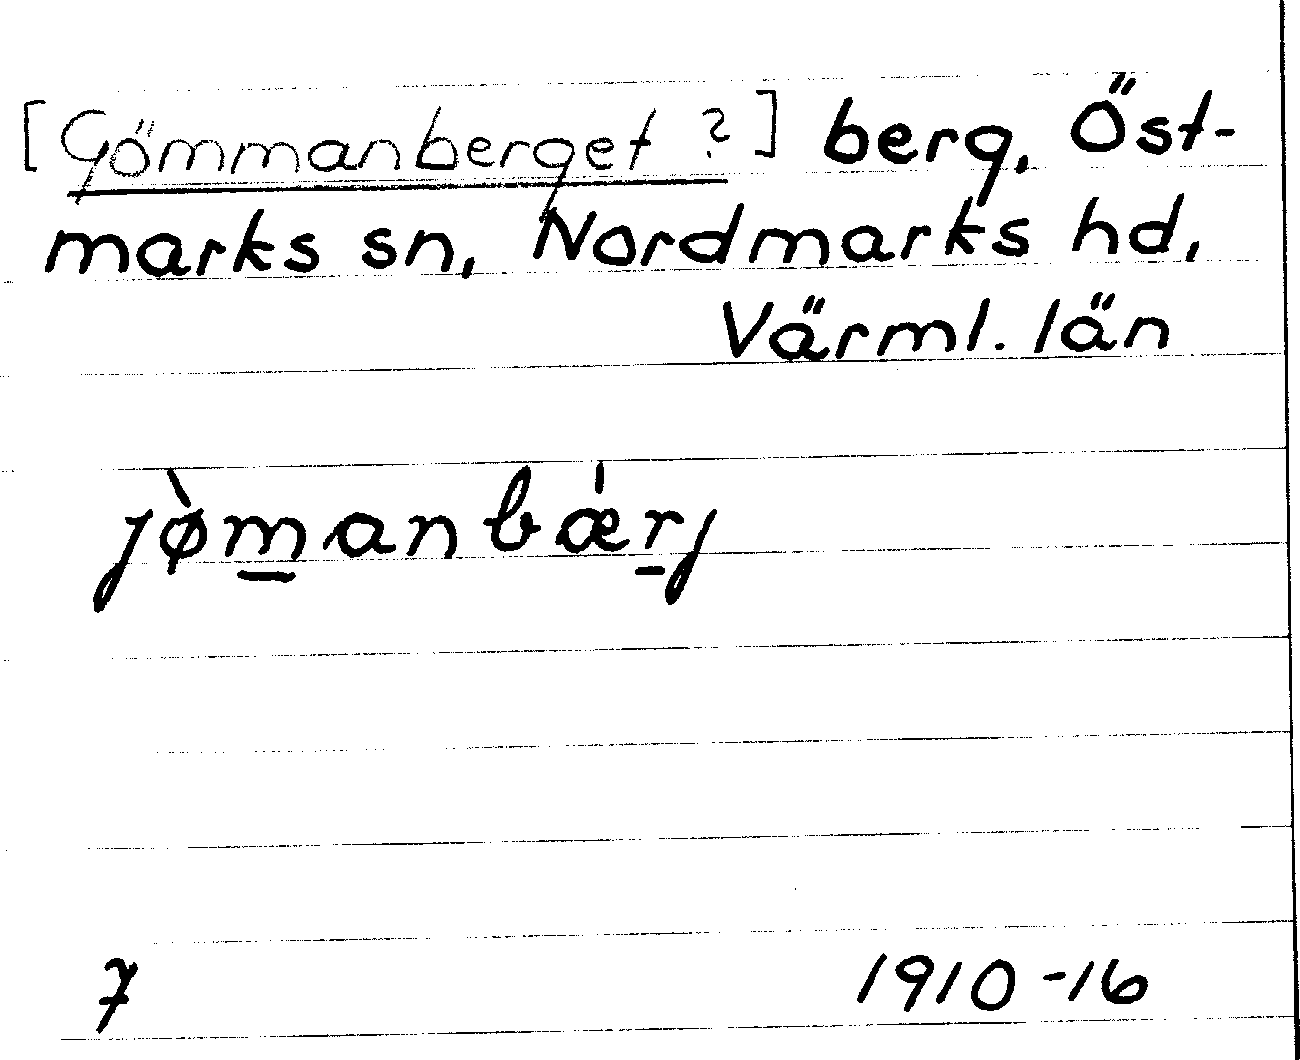 [Gömmanberget ?] berg, Öst-
marks sn, Nordmarks hd,
Värml. län
jø̀m̲anbæ̍r̲j
7
1910-16